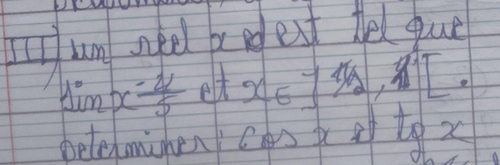 III) un réel x est tel que
sin x = 4/5 et x ∈ ] π/2, π [.
Determiner: cos x et tg x